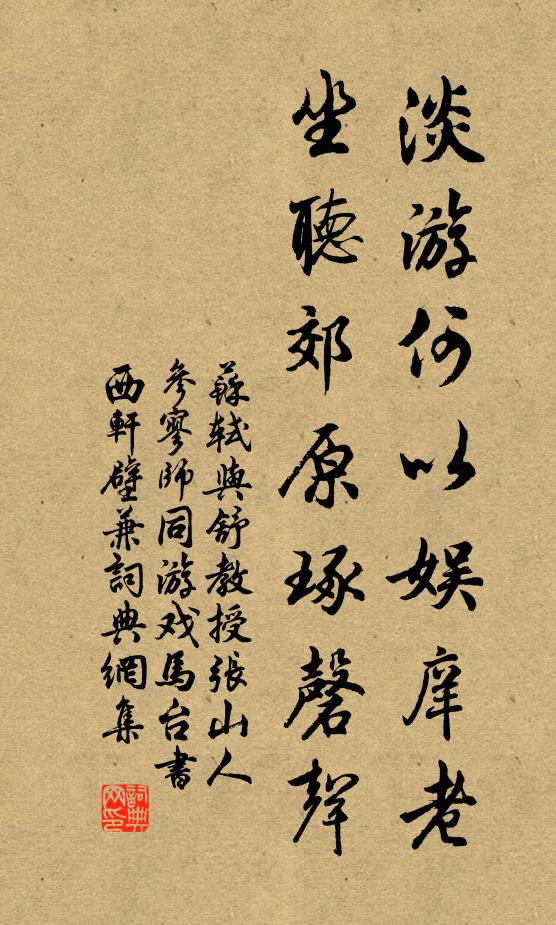 淡游何以娱庠老
坐聽郊原琢磬聲
蘇軾與舒教授張山人
參寥師同游戏馬台書
西軒壁兼詞典網集
詞典网印